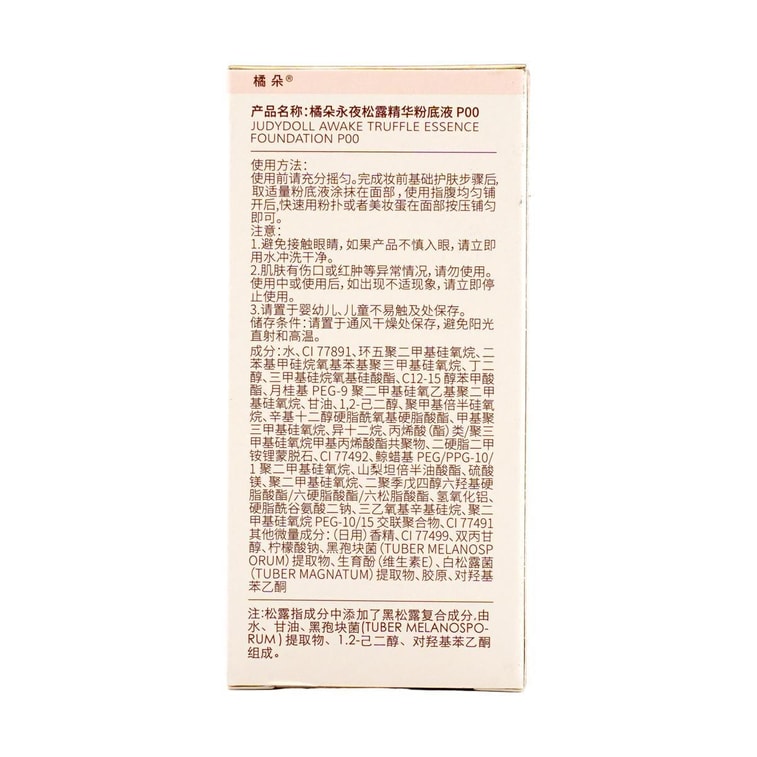 橘朵®
产品名称:橘朵永夜松露精华粉底液 P00
JUDYDOLL AWAKE TRUFFLE ESSENCE
FOUNDATION P00
使用方法:
使用前请充分摇匀。完成妆前基础护肤步骤后,
取适量粉底液涂抹在面部，使用指腹均匀铺
开后,快速用粉扑或者美妆蛋在面部按压铺匀
即可。
注意:
1.避免接触眼睛，如果产品不慎入眼，请立即
用水冲洗干净。
2.肌肤有伤口或红肿等异常情况，请勿使用。
使用中或使用后，如出现不适现象，请立即停
止使用。
3.请置于婴幼儿、儿童不易触及处保存。
储存条件:请置于通风干燥处保存，避免阳光
直射和高温。
成分:水、CI 77891、环五聚二甲基硅氧烷、二
苯基甲硅烷氧基苯基聚三甲基硅氧烷、丁二
醇、三甲基硅烷氧基硅酸酯、C12-15 醇苯甲酸
酯、月桂基 PEG-9 聚二甲基硅氧乙基聚二甲
基硅氧烷、甘油、1,2-己二醇、聚甲基倍半硅氧
烷、辛基十二醇硬脂酰氧基硬脂酸酯、甲基聚
三甲基硅氧烷、异十二烷、丙烯酸（酯）类/聚三
甲基硅氧烷甲基丙烯酸酯共聚物、二硬脂二甲
铵锂蒙脱石、CI 77492、鲸蜡基 PEG/PPG-10/
1 聚二甲基硅氧烷、山梨坦倍半油酸酯、硫酸
镁、聚二甲基硅氧烷、二聚季戊四醇六羟基硬
脂酸酯/六硬脂酸酯/六松脂酸酯、氢氧化铝、
硬脂酰谷氨酸二钠、三乙氧基辛基硅烷、聚二
甲基硅氧烷 PEG-10/15 交联聚合物、CI 77491
其他微量成分:（日用）香精、CI 77499、双丙甘
醇、柠檬酸钠、黑孢块菌（TUBER MELANOSP
ORUM）提取物、生育酚（维生素E）、白松露菌
（TUBER MAGNATUM）提取物、胶原、对羟基
苯乙酮
注:松露指成分中添加了黑松露复合成分.由
水、甘油、黑孢块菌(TUBER MELANOSPO-
RUM ) 提取物、1.2-己二醇、对羟基苯乙酮
组成。